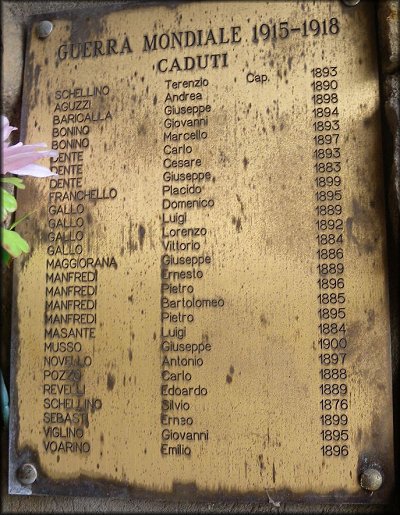 GUERRA MONDIALE 1915-1918
CADUTI
SCHELLINO Terenzio Cap. 1893
AGUZZI Andrea 1890
BARICALLA Giuseppe 1898
BONINO Giovanni 1894
BONINO Marcello 1893
DENTE Carlo 1897
DENTE Cesare 1893
DENTE Giuseppe 1883
FRANCHELLO Placido 1899
GALLO Domenico 1895
GALLO Luigi 1889
GALLO Lorenzo 1892
GALLO Vittorio 1884
MAGGIORANA Giuseppe 1886
MANFREDI Ernesto 1889
MANFREDI Pietro 1896
MANFREDI Bartolomeo 1885
MANFREDI Pietro 1895
MASANTE Luigi 1884
MUSSO Giuseppe 1900
NOVELLO Antonio 1897
POZZO Carlo 1888
REVELLI Edoardo 1889
SCHELLINO Silvio 1876
SEBASTI 1899
VIGLINO Giovanni 1895
VOARINO Emilio 1896